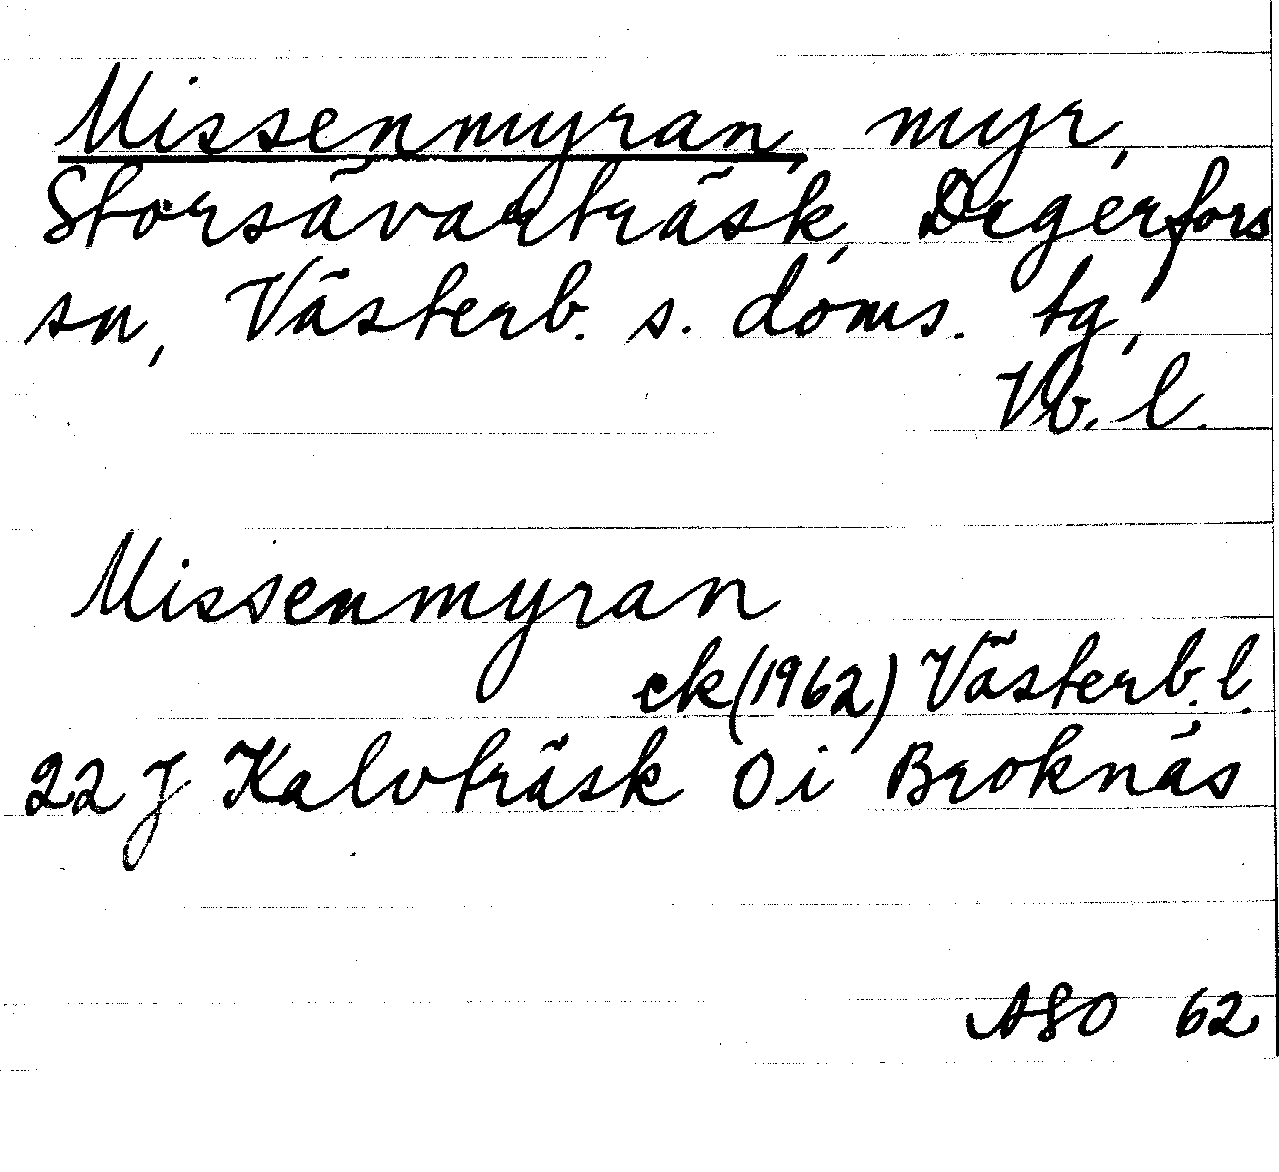 Missenmyran, myr,
Storsävarträsk, Degerfors
sn, Västerb. s. doms. tg,
Vb. l.
Missenmyran
ek (1962) Västerb. l.
22 J Kalvträsk 0 i Broknäs
ASO 62